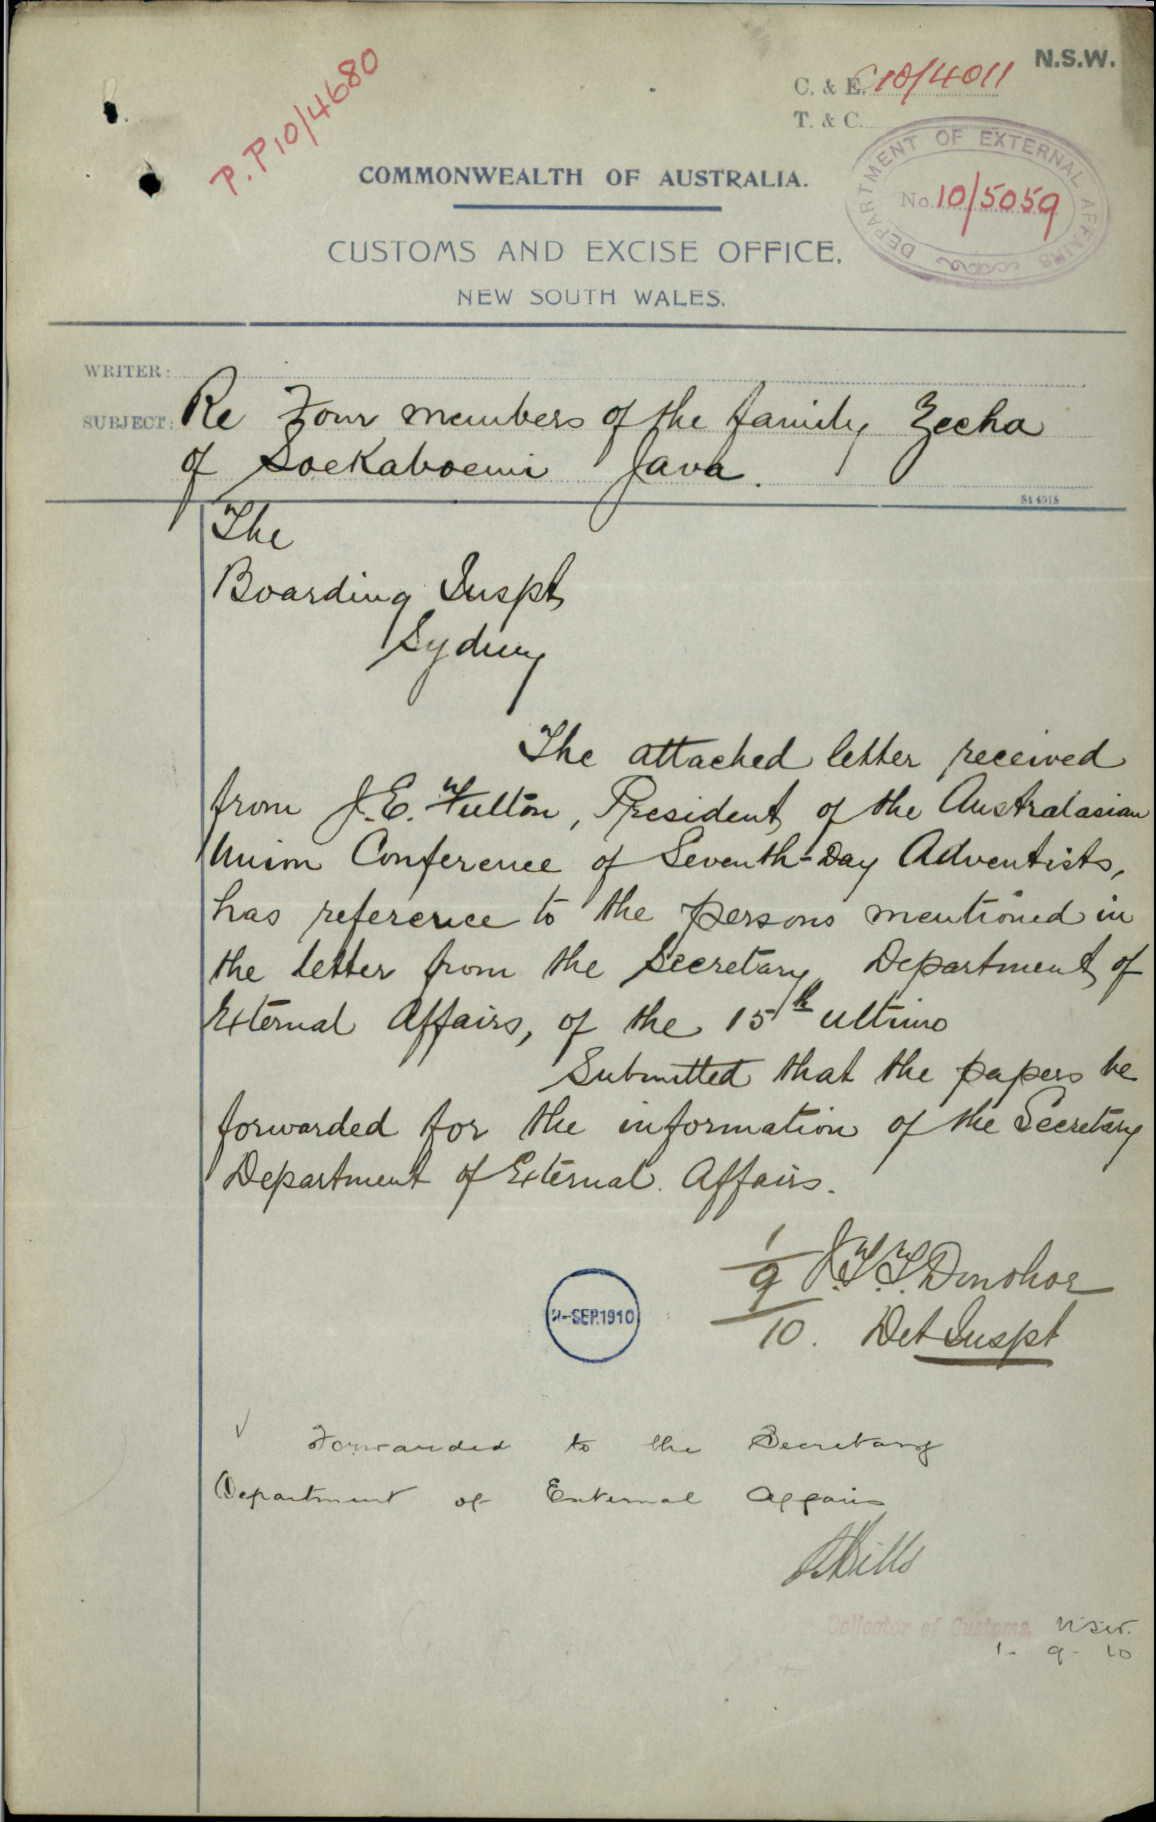 N.S.W.
P.P 10/4680
C. & E. C10/4011
T. & C.
DEPARTMENT OF EXTERNAL AFFAIRS
No. 10/5059
COMMONWEALTH OF AUSTRALIA.
CUSTOMS AND EXCISE OFFICE,
NEW SOUTH WALES.
WRITER:
SUBJECT: Re Four members of the family Zecha
of Soekaboemi Java.
The
Boarding Inspt
Sydney
The attached letter received
from J.E. Fulton, President of the Australasian
Union Conference of Seventh-Day Adventists,
has reference to the persons mentioned in
the letter from the Secretary Department of
External Affairs, of the 15th ultimo
Submitted that the papers be
forwarded for the information of the Secretary
Department of External Affairs.
1/9/10. J.T.T. Donohoe
Det Inspt
2-SEP.1910
Forwarded to the Secretary
Department of External Affairs
Collector of Customs, NSW.
1-9-10